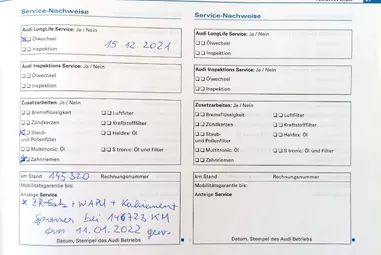 Service-Nachweise
Audi LongLife Service: Ja / Nein
Ölwechsel
Inspektion
15.12.2021
Audi Inspektions Service: Ja / Nein
Ölwechsel
Inspektion
Zusatzarbeiten: Ja / Nein
Bremsflüssigkeit
Luftfilter
Zündkerzen
Kraftstofffilter
Staub- und Pollenfilter
Haldex: Öl
Multitronic: Öl
S tronic: Öl / Filter
Zahnriemen
km Stand 145320 Rechnungsnummer
Mobilitätsgarantie bis:
Anzeige Service
* ZR-Satz + WAPU + Keilriemen
Spanner bei 146723 KM
am 11.01.2022 gew.
Datum, Stempel des Audi Betriebs
Service-Nachweise
Audi LongLife Service: Ja / Nein
Ölwechsel
Inspektion
Audi Inspektions Service: Ja / Nein
Ölwechsel
Inspektion
Zusatzarbeiten: Ja / Nein
Bremsflüssigkeit
Luftfilter
Zündkerzen
Kraftstofffilter
Staub- und Pollenfilter
Haldex: Öl
Multitronic: Öl
S tronic: Öl / Filter
Zahnriemen
km Stand Rechnungsnummer
Mobilitätsgarantie bis:
Anzeige Service
Datum, Stempel des Audi Betriebs